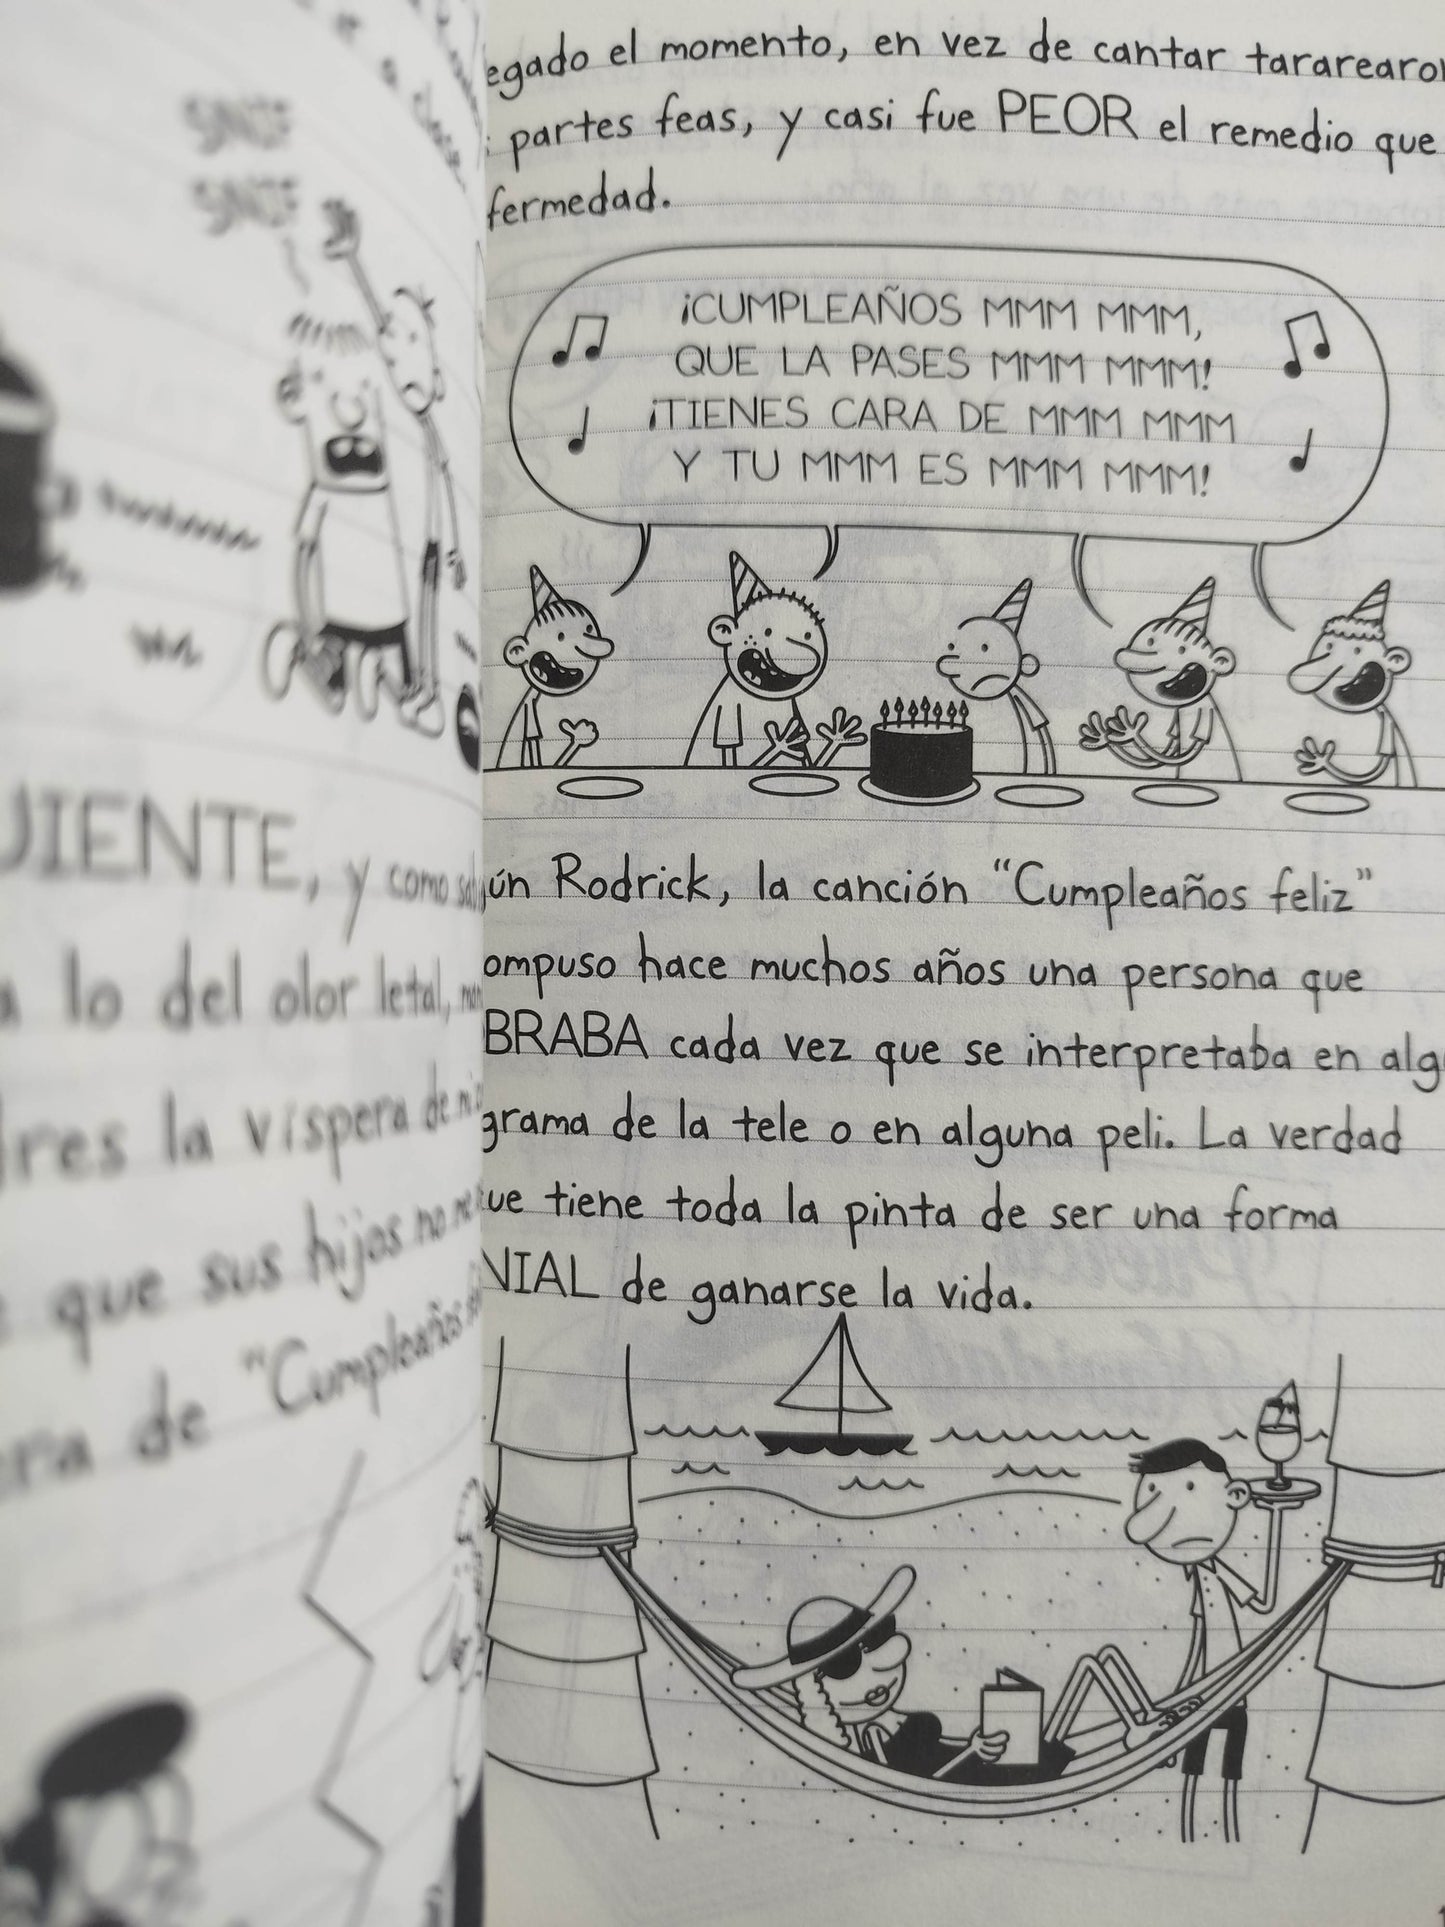 SNIF
SNIF
UIENTE, y como
a lo del olor letal,
dres la víspera de
que sus hijos no
era de "Cumpleaños
egado el momento, en vez de cantar tararearon
partes feas, y casi fue PEOR el remedio que
fermedad.
¡CUMPLEAÑOS MMM MMM,
QUE LA PASES MMM MMM!
¡TIENES CARA DE MMM MMM
Y TU MMM ES MMM MMM!
ún Rodrick, la canción "Cumpleaños feliz"
ompuso hace muchos años una persona que
BRABA cada vez que se interpretaba en alg
grama de la tele o en alguna peli. La verdad
ue tiene toda la pinta de ser una forma
NIAL de ganarse la vida.